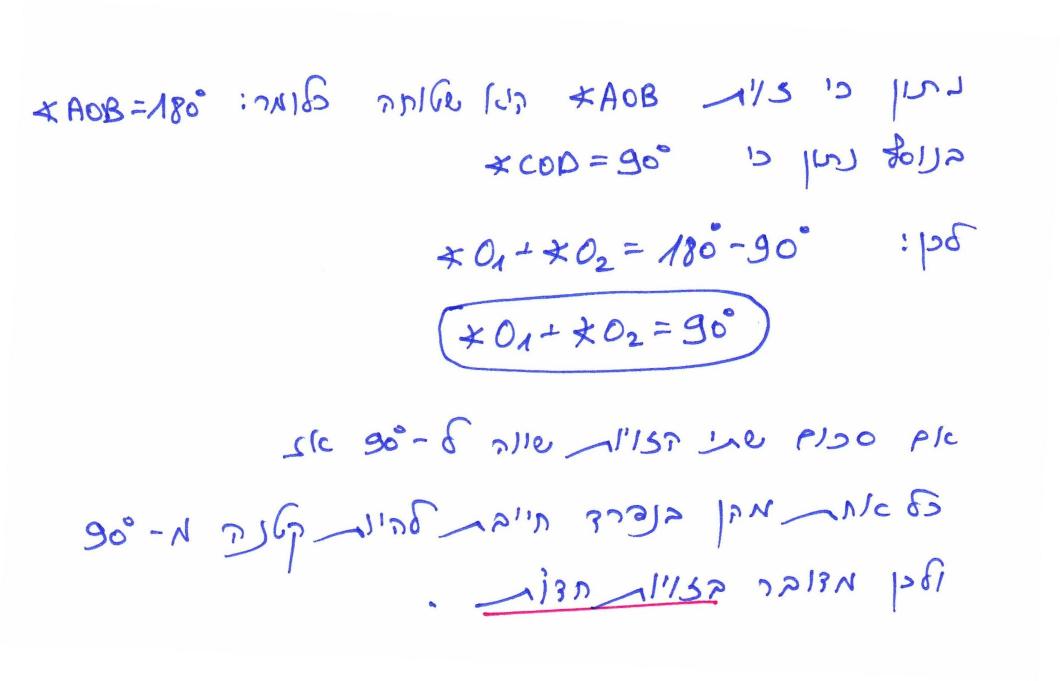 נתון כי זוית ∢AOB היא שטוחה כלומר: ∢AOB=180°
בנוסף נתון כי ∢COD=90°
לכן: ∢O₁+∢O₂=180°-90°
∢O₁+∢O₂=90°
אם סכום שתי הזויות שווה ל-90° אז
כל אחת מהן בנפרד חייבת להיות קטנה מ-90°
ולכן מדובר בזויות חדות.